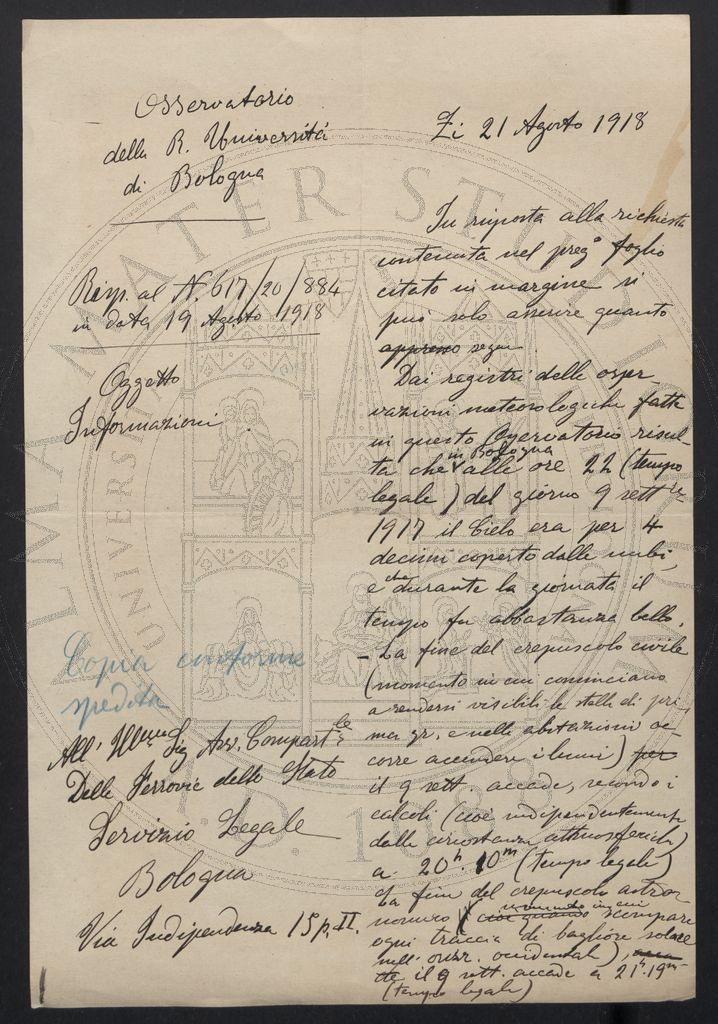 Osservatorio
della R. Università
di Bologna
Li 21 Agosto 1918
Risp. al N. 617/20/884
in data 19 Agosto 1918
Oggetto
Informazioni
In risposta alla richiesta
contenuta nel preg° foglio
citato in margine si
può solo asserire quanto
appresso segue.
Dai registri delle osser-
vazioni meteorologiche fatte
in questo Osservatorio risul-
ta che in Bologna alle ore 22 (tempo
legale) del giorno 9 sett.bre
1917 il Cielo era per 4
decimi coperto dalle nubi,
e che durante la giornata il
tempo fu abbastanza bello.
- La fine del crepuscolo civile
(momento in cui cominciano
a rendersi visibili le stelle di pri-
ma gr. e nelle abitazioni oc-
corre accendere i lumi) per
il 9 sett. accade, secondo i
calcoli (cioè indipendentemente
dalle circostanze atmosferiche)
a 20h. 10m (tempo legale)
La fine del crepuscolo astro-
nomico (cioè quando momento in cui scompare
ogni traccia di bagliore solare
nell' orizz. occidentale),
il 9 sett. accade a 21h.19m
(tempo legale)
Copia conforme
spedita
All' Illmo Sig. Avv. Compart.le
Delle Ferrovie dello Stato
Servizio Legale
Bologna
Via Indipendenza 15 p. II.
ALMA MATER STUDIORUM
UNIVERSITÀ
A.D. 1088